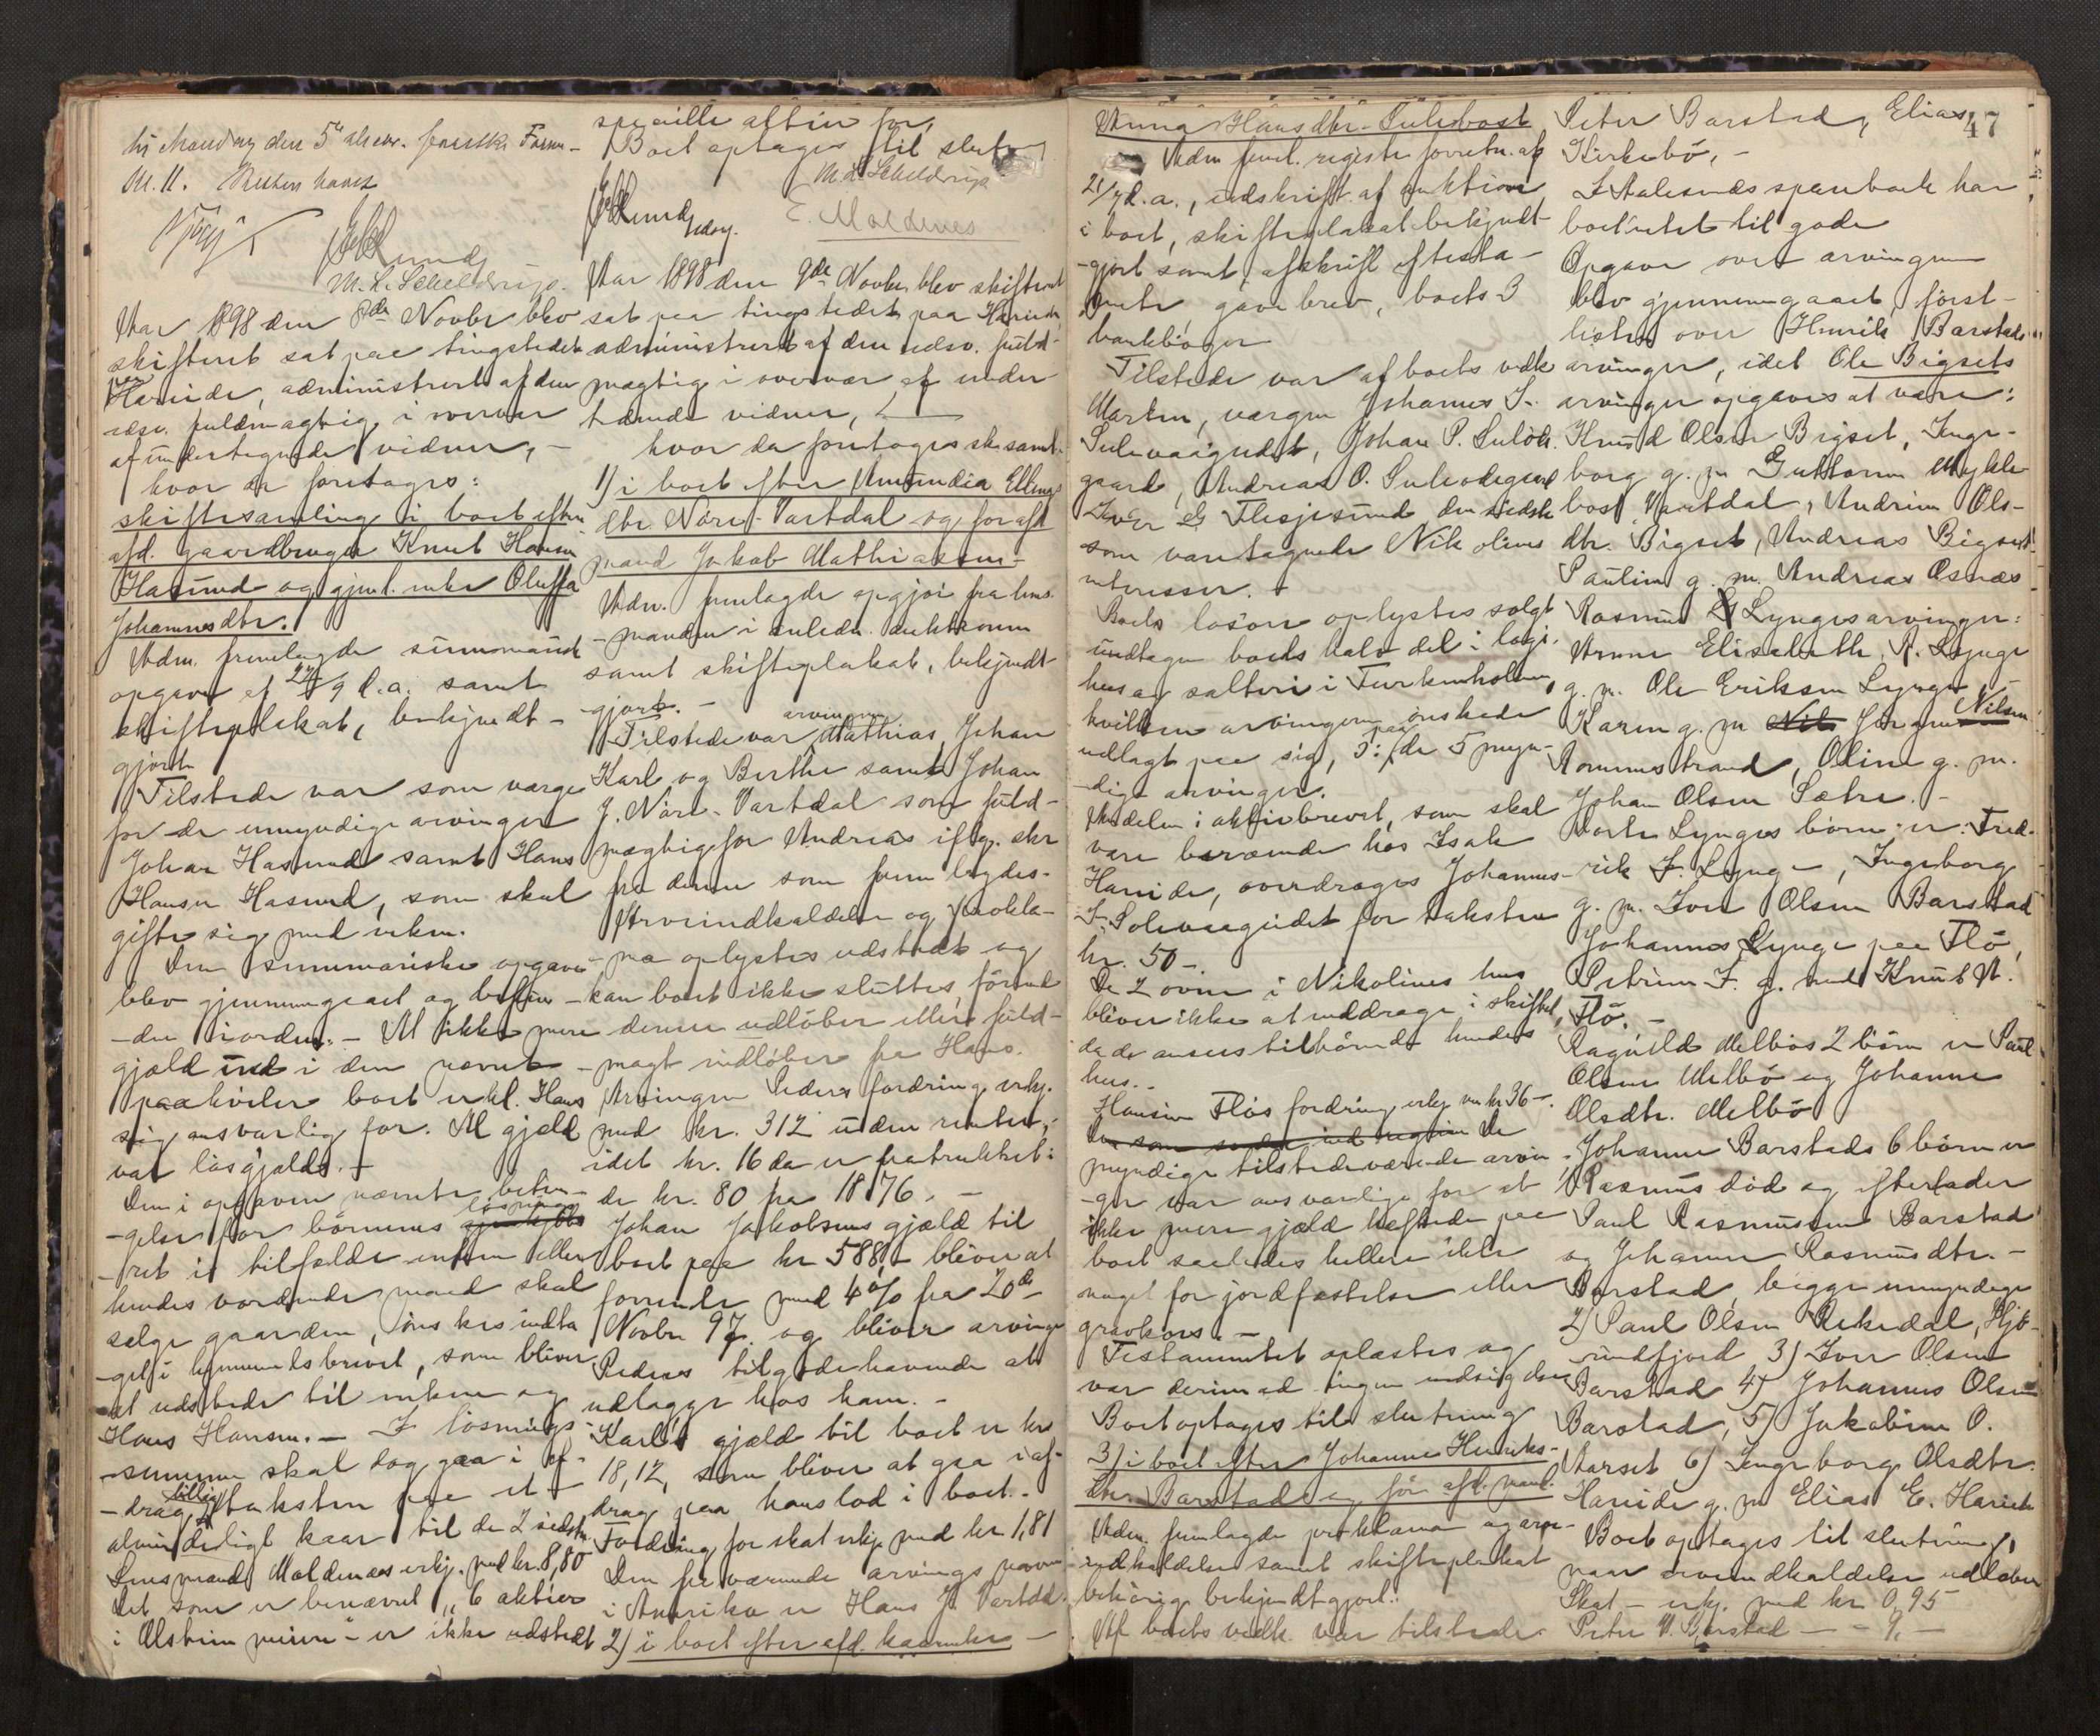 til Mandag den 5te
M. 11. Retten hævet
M. L. Scheldrup.
Aar 1898 den 8de Novbr blev
skifteret sat paa tingstedet
paa Hareide, administrert af den
edsv. fuldmægtig i overvær
af undertegnede vidner, -
hvor da foretoges:
skiftesamling i boet efter
afd. gaardbruger Knut Hansen
Hasund og gjenl. enke Oluffa
Johannesdtr.
Adm. fremlagde summarisk
opgave af 27/9 d.a. samt
skifteplakat, bekjendt-
gjort.
Tilstede var som værge
for de umyndige arvinger
Johan Hasund samt Hans
Hansen Hasund, som skal
gifte sig med enken.
Den summariske opgave
blev gjennemgaaet og befun-
den i orden. - Al ikke mere
gjæld end i den nævnt
paahviler boet erkl. Hans
sig ansvarlig for. Al gjæld
var løsgjæld. -
Den i opgaven nævnte betin-
gelse for børnenes løsnings
ret i tilfælde enken eller
hendes vordende mand skal
sælge gaarden, ønskes indta
get i hjemmelsbrevet, som bliver
at udstede til enken og
Hans Hansen. - I løsnings-
summen skal dog gaa i af-
drag tillige taksten paa et
almindeligt kaar til de 2 sidste
Lensmand Maldenæs erkj. med kr. 8,80
Det som er benævnt "6 aktier
i Alstein - er ikke udstedt
specielle aktier for,
Boet optages til slutning
M. L. Scheldrup
E. Maldenes
Aar 1898 den 9de Novbr. blev skifteret
sat paa tingstedet paa Hareide,
administrert af den edsv. fuld-
mægtig i overvær af under-
tegnede vidner,
hvor da foretoges sk. samt.
1) i boet efter Amundia Ellings
dtr. Nøre-Vartdal og før afd
mand Jakob Mathiassen-
Adm. fremlagde opgjør fra lens-
manden i anledn. auktionen
samt skifteplakat, bekjendt
gjort. -
Tilstede var arvingerne Mathias, Johan
Karl og Berthe samt Johan
J. Nøre-Vartdal som fuld-
mægtig for Andreas iflg. skr
fra denne som fremlagdes.
Arveindkaldelse og prokla-
ma oplystes udstedt og
kan boet ikke sluttes, førend
denne udløber eller fuld-
magt indløber fra Hans.
Arvingen Peders fordring erkj.
med kr. 312 uden renter,
idet kr. 16 da er fratrukket i
de kr. 80 fra 1876. -
Johan Jakobsens gjæld til
boet paa kr 588,- bliver at
forrente med 4% fra 20de
Novbr 97. og bliver arving
Peders tilgodehavende at
udlægge hos ham. -
Karls gjæld til boet er kr
18,12, som bliver at gaa i af-
drag paa hans lod i boet. -
Fordring for skat erkj. med kr 1,81
Den fraværende arvings navn
i Amerika er Hans J. Vartdal.
2) i boet efter afd. kaarenke -
47
Anna Hansdtr. Sulebost
Adm freml. registr. forretn. af
21/7 d.a., udskrift af auktion
i boet, skifteplakat bekjendt-
gjort samt afskrift af testa-
mente, gavebrev, boets 3
bankbøger
Tilstede var af boets vedk
Marten, værgen Johannes I.
Sulevaagndet, Johan P. Suløde
gaard, Andreas O. Sulødegaard
Iver Flesjesund den sidste
som varetagende Nikolines
interesser.
Boets løsøre oplystes solgt
undtagen boets halvdel i logi-
hus og salteri i Furkenholmen,
hvilken arvingerne ønskede
udlagt paa sig, ɔ: paa de 5 myn-
dige arvinger.
Andelen i aktiebrevet, som skal
være beroende hos Isak
Hareide, overdrages Johannes
I. Solevaagndet for taksten
kr. 50 -.
De 2 ovne i Nikolines hus
bliver ikke at inddrage i skiftet,
da de ansees tilhørende hendes
hus. -
Hansine Fløs fordring erkj. med kr 36 -.
De
myndige tilstedeværende arvin-
ger var ansvarlige for at
ikke mere gjæld heftede paa
boet saaledes heller ikke
noget for jordfæstelse eller
gravkors. -
Testamentet oplæstes og
var derimod ingen indsigelser
Boet optages til slutning
3) i boet efter Johanne Henriks-
dtr. Barstad og før afd. mand.
Adm. fremlagde proklama og arve-
indkaldelse samt skifteplakat
behørig bekjendtgjort.
Af boets vedk. var tilstede
Peter Barstad, Elias
Kirkebø, -
I Aalesunds sparebank har
boet intet til gode
Opgave over arvingerne
blev gjennemgaaet, først-
listen over Henrik Barstads
arvinger, idet Ole Bigsets
arvinger opgaves at være:
Knud Olsen Bigset, Inge-
borg g. m Guttorm Mykle-
bost Vartdal, Andrine Ols-
dtr. Bigset, Andreas Bigset
Pauline g. m. Andreas Osnæs
Rasmus Lynges arvinger:
Anne Elisabeth R. Lynge
g. m. Ole Eriksen Lynge, -
Karen g. m Jørgen Nilsen
Rommestrand, Oline g. m.
Johan Olsen Sætre. -
Dorte Lynges børn er: Fred-
rik F. Lynge, Ingeborg
g. m. Iver Olsen Barstad
Johannes Lynge paa Flø,
Petrine F. g. med Knut A.
Flø. -
Ragnild Melbøs 2 børn er Paul
Olsen Melbø og Johanne
Olsdtr. Melbø
Johanne Barstads 6 børn er
1) Rasmus død og efterlader
Paul Rasmussen Barstad
og Johanne Rasmusdtr. -
Barstad, begge umyndige
2) Paul Olsen Rekedal, Hjø-
rundfjord 3) Iver Olsen
Barstad 4) Johannes Olsen
Barstad, 5) Jakobine O.
Aarset 6) Ingeborg Olsdtr.
Hareide g. m Elias E. Hareide
Boet optages til slutning,
naar arveindkaldelse udløber
Skat - erkj. med kr 0,95
Peter A. Barstad - - 9. -